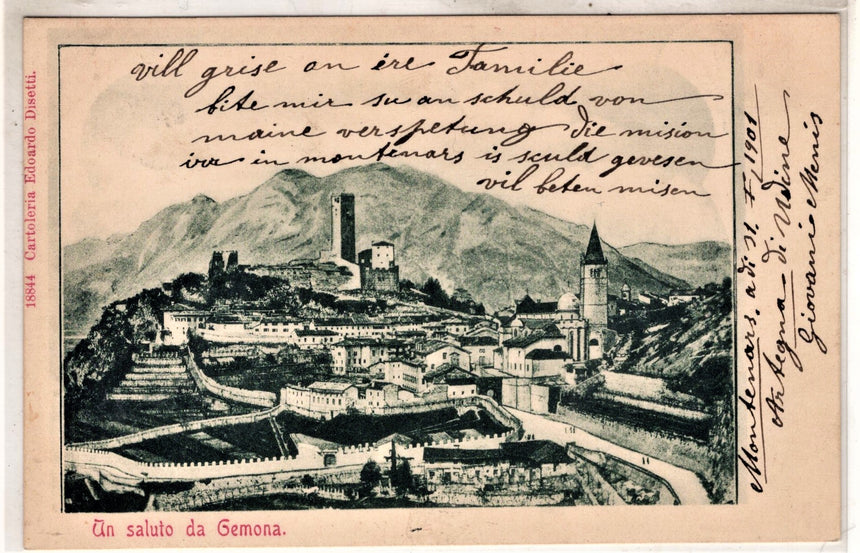 vill grise an ire Familie
bite mir su an schuld von
maine verspetung die mision
in montenars is sculd gevesen
vil beten misen
Montenars. a di 31. F, 1901
Artegna di Udine
Giovani Menis
18844 Cartoleria Edoardo Disetti.
Un saluto da Gemona.